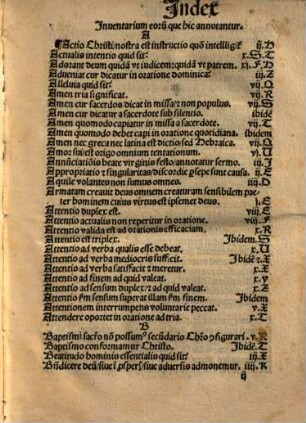 Index
Inventarium eorũ que hic annotantur.
A
Actio Christi nostra est instructio quõ intelligit² ij.H
Actualis intentio quid sit² x.S.T
Adorant deum quidã vt iudicem: quidã vt patrem. xj.F.D
Adueniat cur dicatur in oratione dominica² iij.Z
Alleluia quid sit² vij.Q
Amen tria significat. vij.R
Amen cur sacerdos dicat in missa² et non populus. vij.S
Amen cur dicatur a sacerdote sub silentio. ibidẽ
Amen quomodo capiatur in missa² et in oratione² vij.T
Amen quomodo debet capi in oratione quotidiana. Ibidem
Amen nec greca nec latina est dictio sed Hebraica. vij.Q
Amor sui est origo omnium tentationum. vj.U
Annũciatiõis beate virginis festo, annotatur sermo. ij.I
Appropriatio et singularitas discordie sepe sunt causa. ij.E
Aquile volantes non sumus omnes. iij.D
Armatrem creatur deus omnem creaturam sensibilem
pater bominem cuius virtus est ipsemet deus. j.E
Attentio duplex est. viij.
Attentio actualis non reperitur in oratione. viij.F
Attentio valida est ad orationis efficaciam. x.R
Attentio est triplex. Ibidem.S
Attentio ad verba qualis esse debeat. x.U
Attentio ad verba mediocris sufficit. Ibidẽ
Attentio ad verba satisfacit et meretur. x.X
Attentio ad finem ad quid valeat. x.
Attentio ad sensum duplex² et ad quid valeat. x.Z
Attentio fm sensum superat illam fm finem. Ibidem
Attentionem interrumpens voluntarie peccat. x.X
Attendere oportet in oratione ad tria. x.T
B
Baptismi sacro nõ possum² secũdario Chřo cõfigurari. v.R
Baptismo conformamur Christo. Ibidẽ.T
Beatitudo hominis essentialis quid sit² iij.X
Bñdicere deũ, siue i ᵱsper, siue aduersis admonemur. iij.R
ij